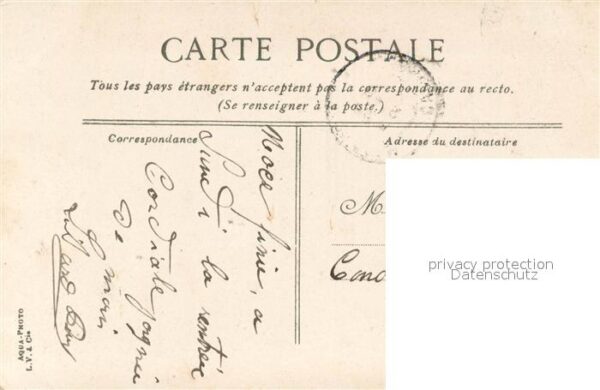 CARTE POSTALE
Tous les pays étrangers n'acceptent pas la correspondance au recto.
(Se renseigner à la poste.)
Correspondance
Adresse du destinataire
Noce finie, a
Lundi la rentrée
Cordiale poignée
de main
M
privacy protection
Datenschutz
AQUA-PHOTO
L.V. & Cie